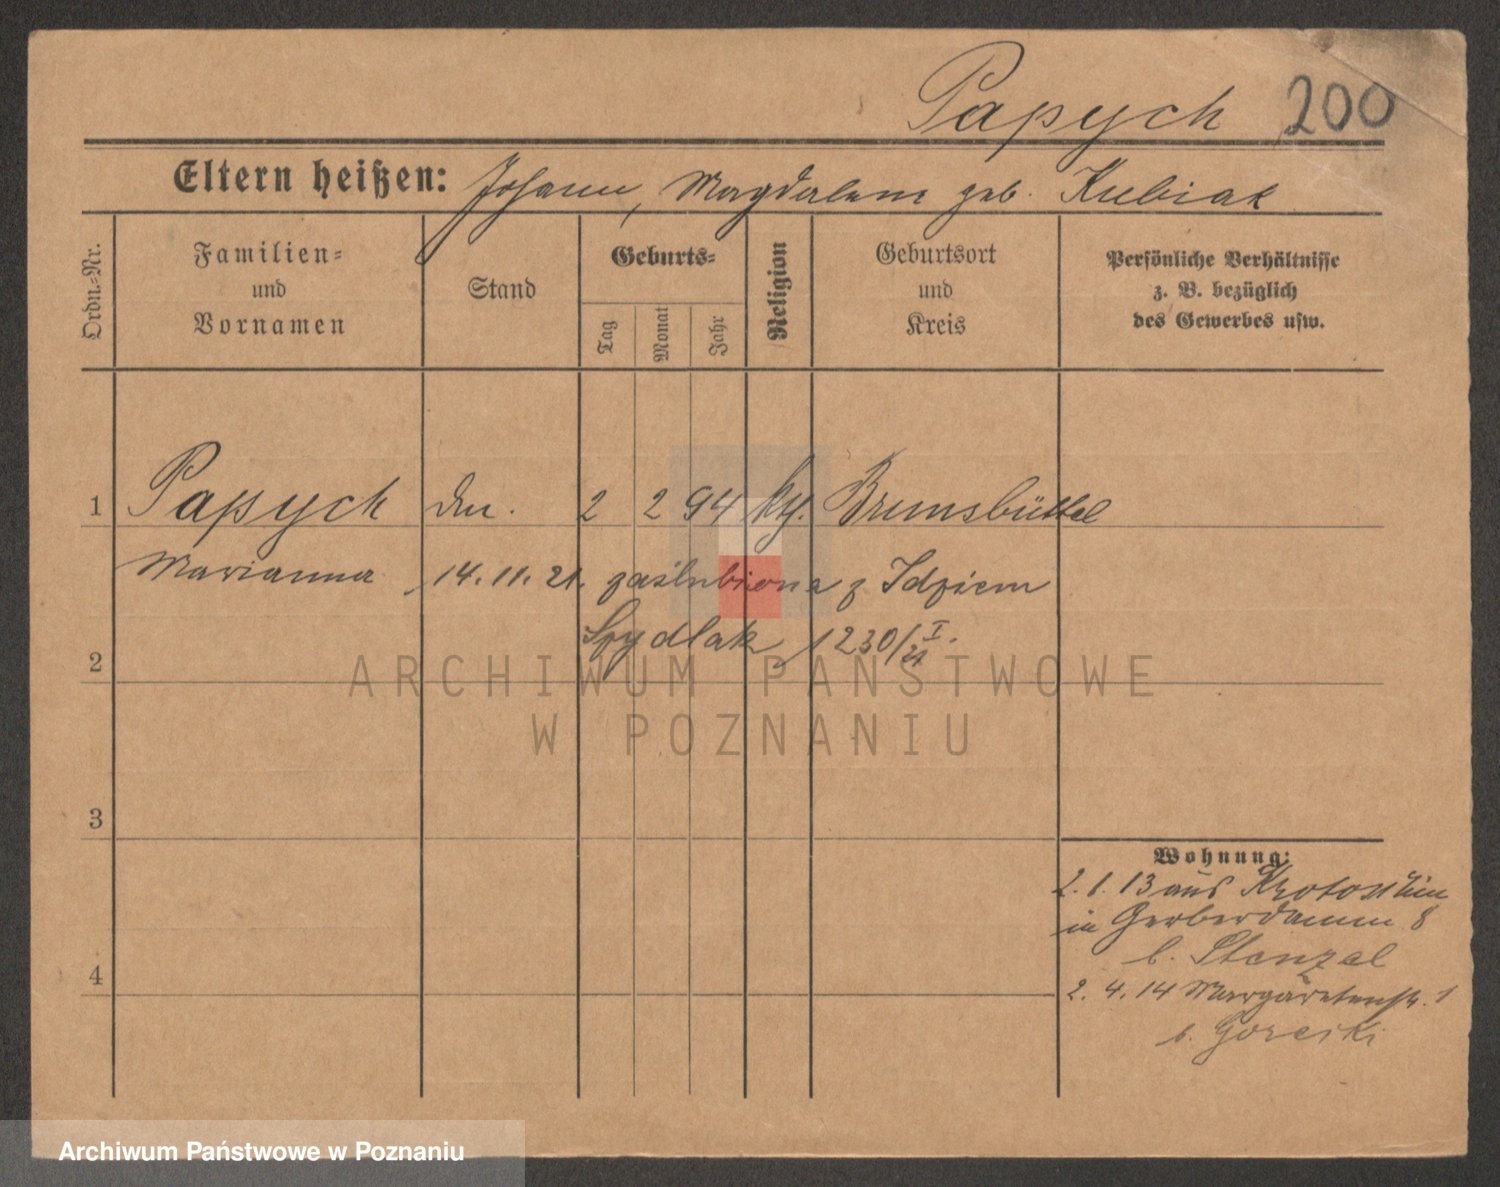 Papych 200
Eltern heißen: Johann, Magdalena geb. Kubiak
Ordn.-Nr.
Familien-
und
Vornamen
Stand
Geburts-
Tag
Monat
Jahr
Religion
Geburtsort
und
Kreis
Persönliche Verhältnisse
z. B. bezüglich
des Gewerbes usw.
1 Papych 2 2 94 Brunsbüttel
Marianna 14.11.21. zaślubiona z Idziem
2 Szydlak, 1230/I 21.
ARCHIWUM PAŃSTWOWE
W POZNANIU
3
Wohnung:
2.1.13 aus Krotoschin
in Gerberdamm 8
b. Stenzel
4
2.4.14 Margaretenstr. 1
b. Gorecki
Archiwum Państwowe w Poznaniu